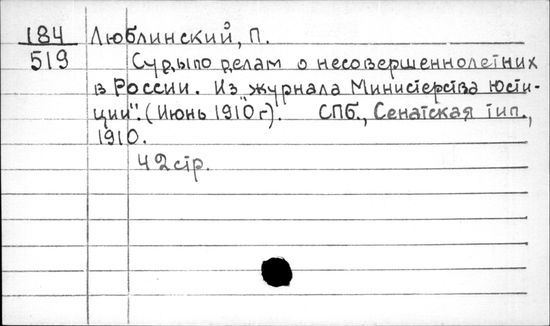 184 Люблинский, П.
519 Суды по делам о несовершеннолетних
в России. Из "журнала Министерства Юсти-
ции". (Июнь 1910 г). СПб., Сенатская тип.,
1910.
42 стр.